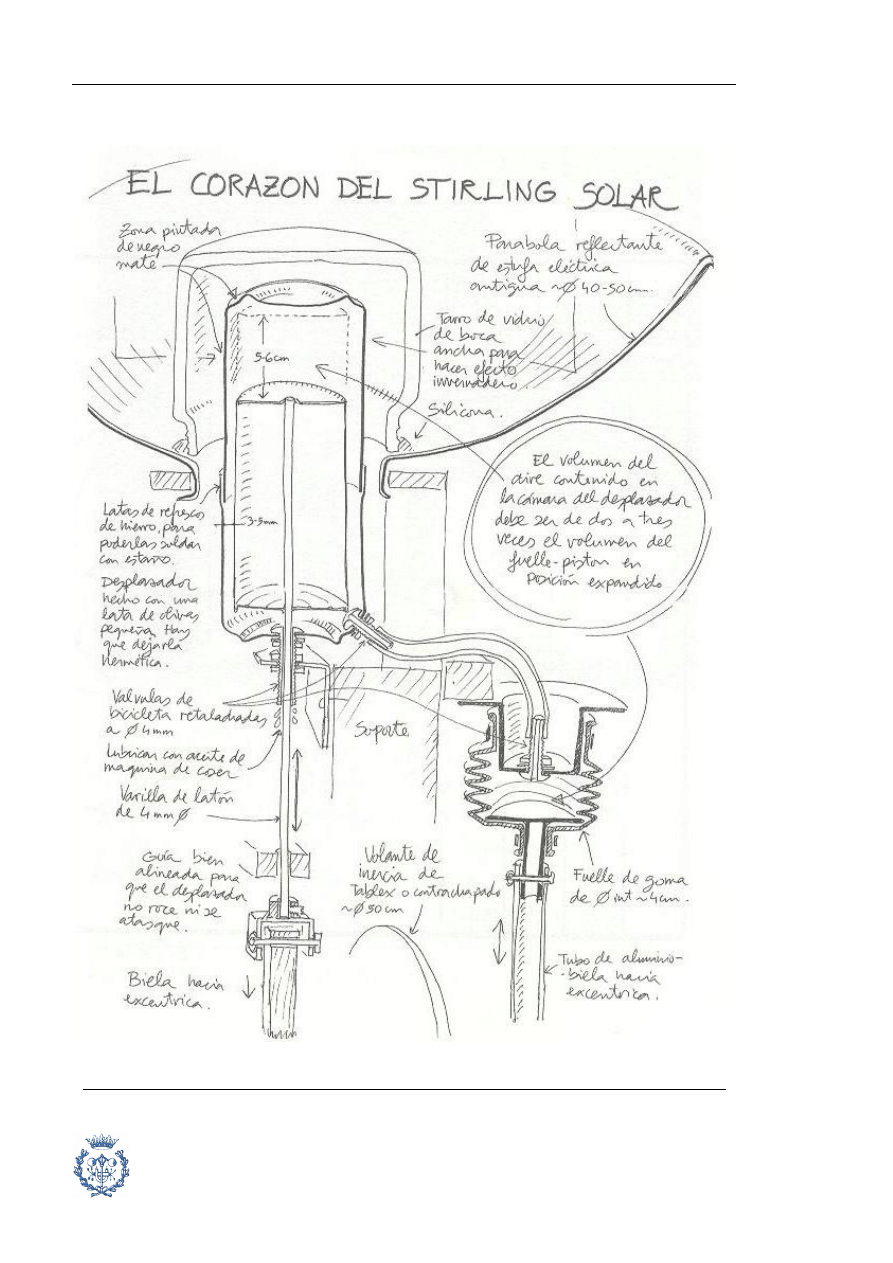 EL CORAZON DEL STIRLING SOLAR
Zona pintada
de negro
mate
Parabola reflectante
de estufa eléctrica
antigua ~Ø 40-50cm.
Tarro de vidrio
de boca
ancha para
hacer efecto
invernadero.
Silicona.
5-6cm
El volumen del
aire contenido en
la cámara del desplasador
debe ser de dos a tres
veces el volumen del
fuelle-piston en
posición expandido
Latas de refrescos
de hierro, para
poderlas soldar
con estaño.
3-5mm
Desplasador
hecho con una
lata de olivas
pequeña. Hay
que dejarla
hermética.
Valvulas de
bicicleta retaladradas
a Ø 4mm
Lubricar con aceite de
maquina de coser
Varilla de latón
de 4mm Ø
Soporte
Guía bien
alineada para
que el desplasador
no roce ni se
atasque.
Volante de
inercia de
Tablex o contrachapado
~Ø 50cm
Fuelle de goma
de Ø int ~4cm.
Biela hacia
excentrica.
Tubo de aluminio-
-biela hacia
excentrica.